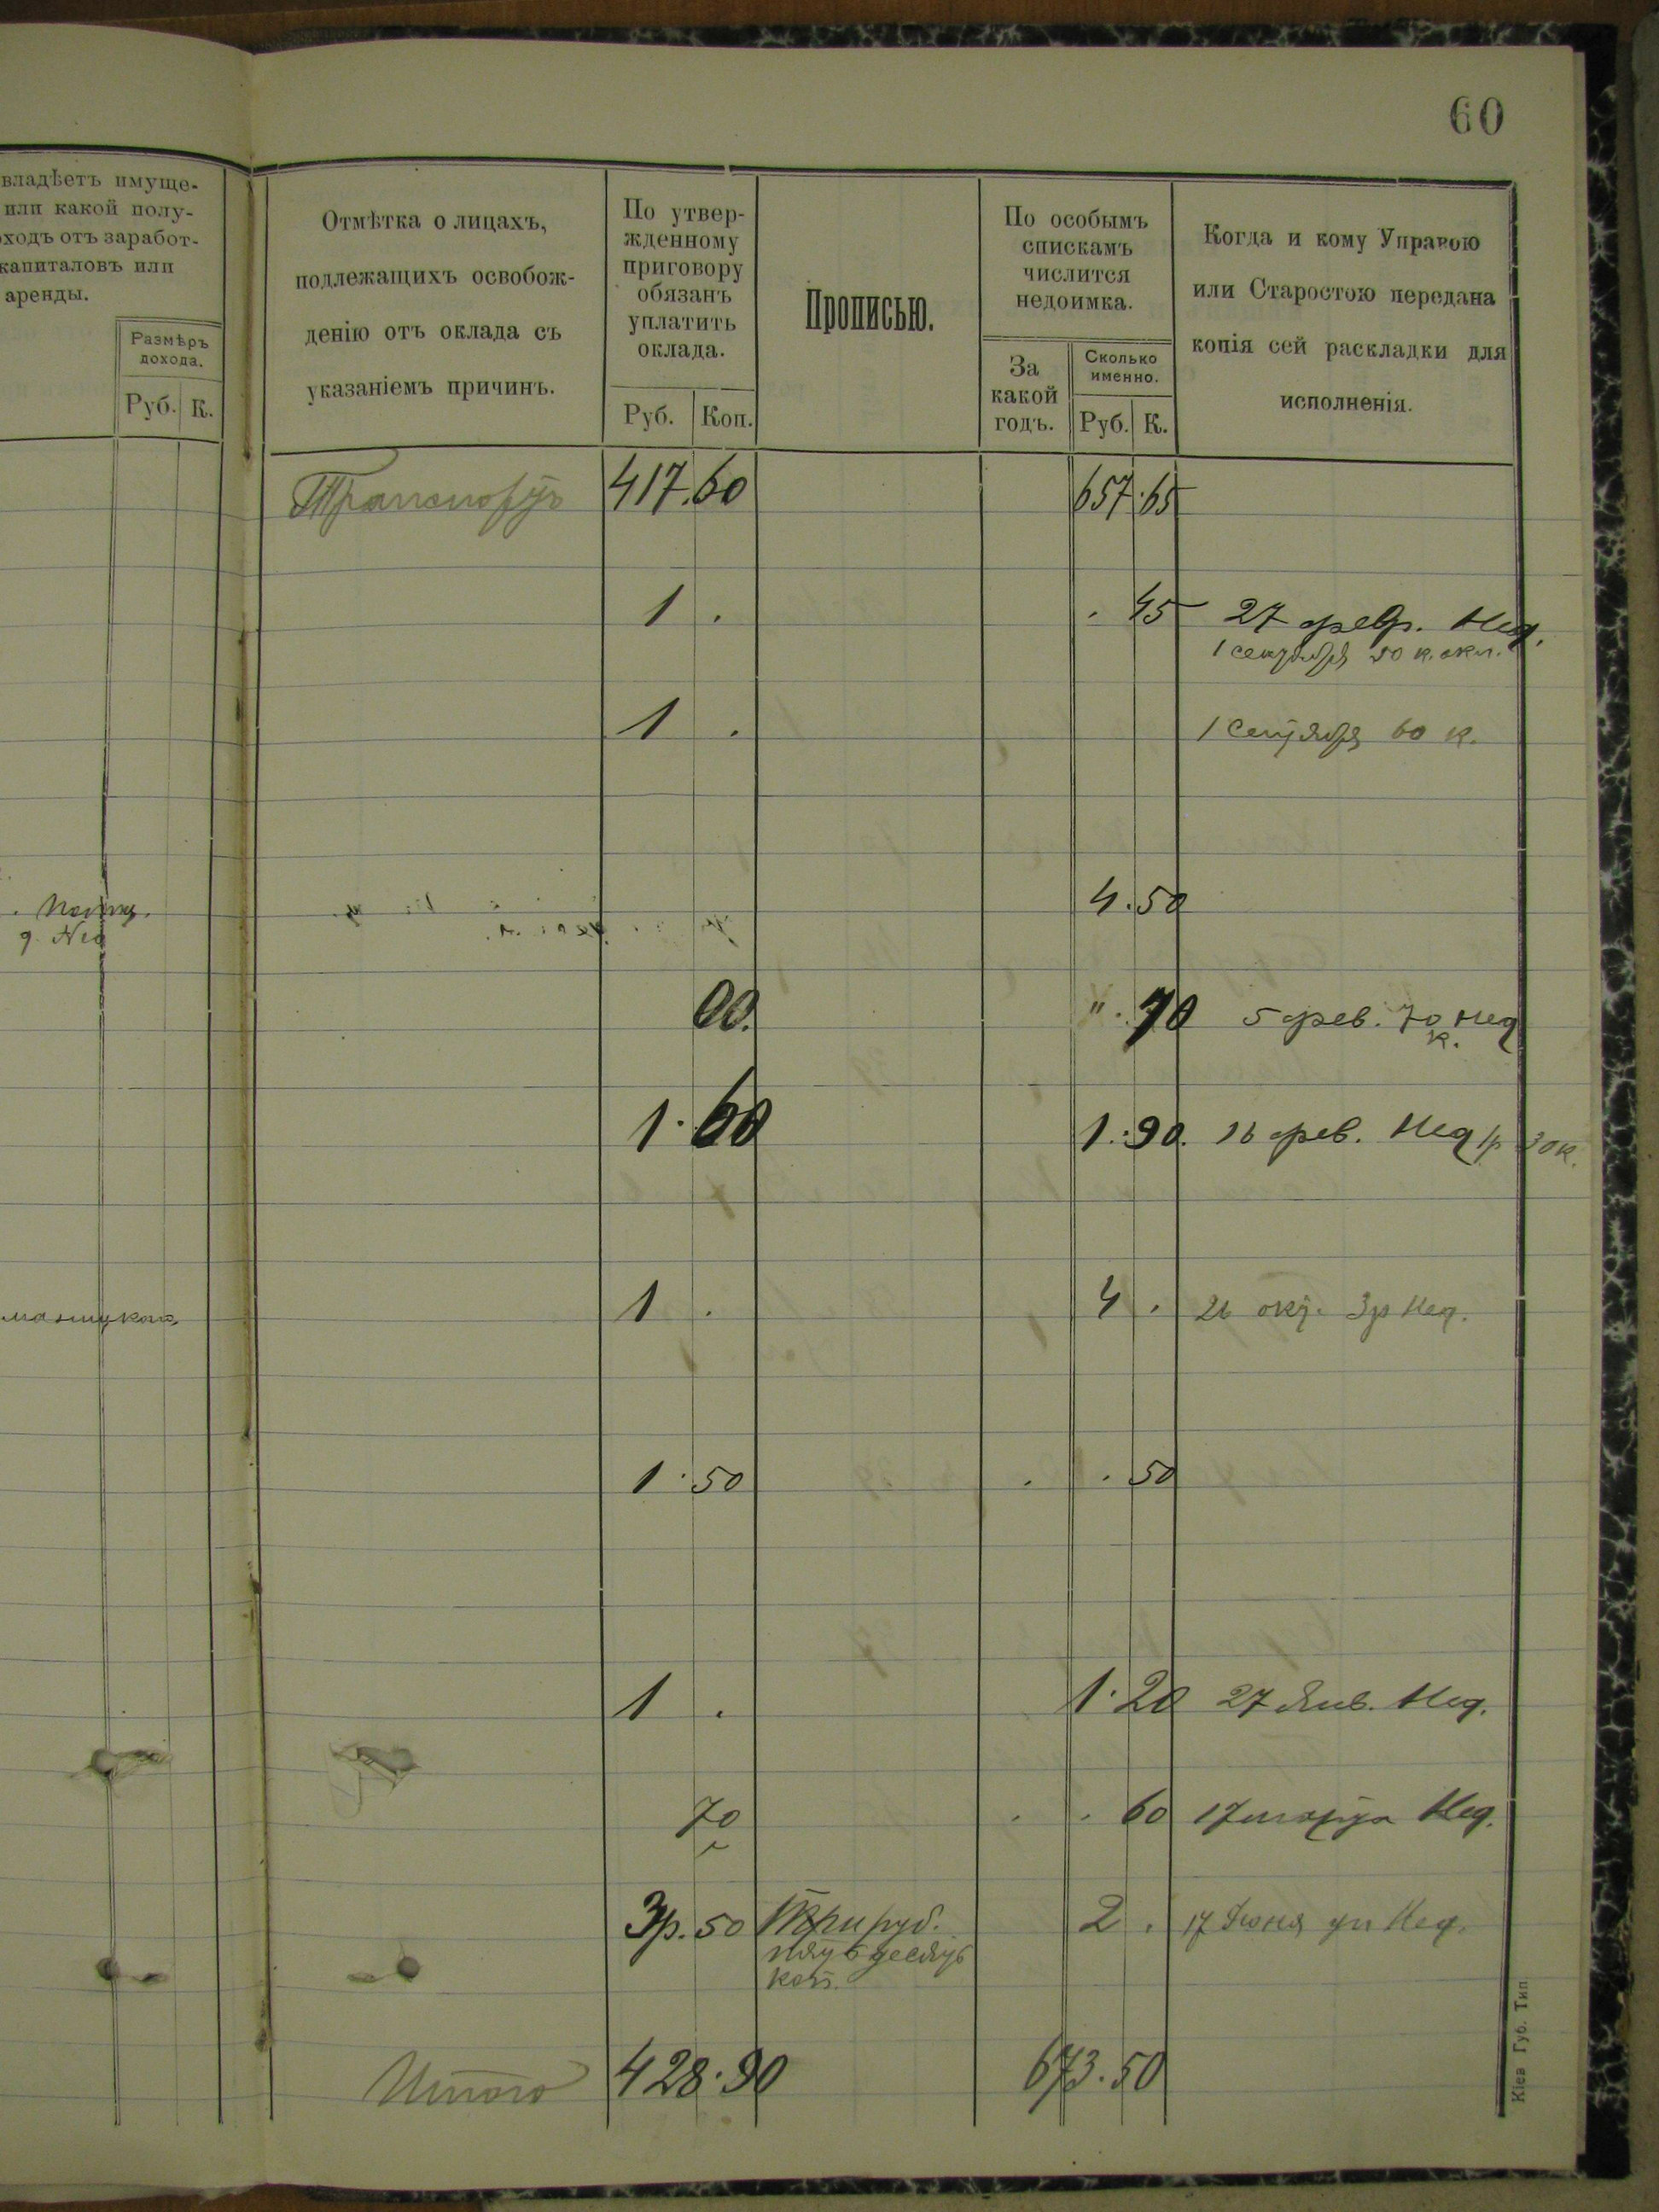 60
владѣетъ имуще-
или какой полу-
оходъ отъ заработ-
капиталовъ или
аренды.
Размѣръ
дохода.
Руб. К.
Отмѣтка о лицахъ,
подлежащихъ освобож-
денію отъ оклада съ
указаніемъ причинъ.
По утвер-
жденному
приговору
обязанъ
уплатить
оклада.
Руб. Коп.
Прописью.
По особымъ
спискамъ
числится
недоимка.
За
какой
годъ.
Сколько
именно.
Руб. К.
Когда и кому Управою
или Старостою передана
копія сей раскладки для
исполненія.
Транспортъ 417.60 657.65
1 . . 45 27 февр. Нед.
1 сентября 50 к. окл.
1 . 1 Сентября 60 к.
4.50
". 70 5 фев. 70 Нед
к.
1.60 1.90. 16 фев. Нед 1р 30к.
1 . 4 . 26 окт. 3р Нед.
1.50 . . 50
1 . 1.20 27 Янв. Нед.
70 . . 60 17 марта Нед.
3р.50 Три руб. 2 . 17 Іюня Нед.
пятьдесятъ
коп.
Итого 428.90 673.50
Кіев Губ. Тип